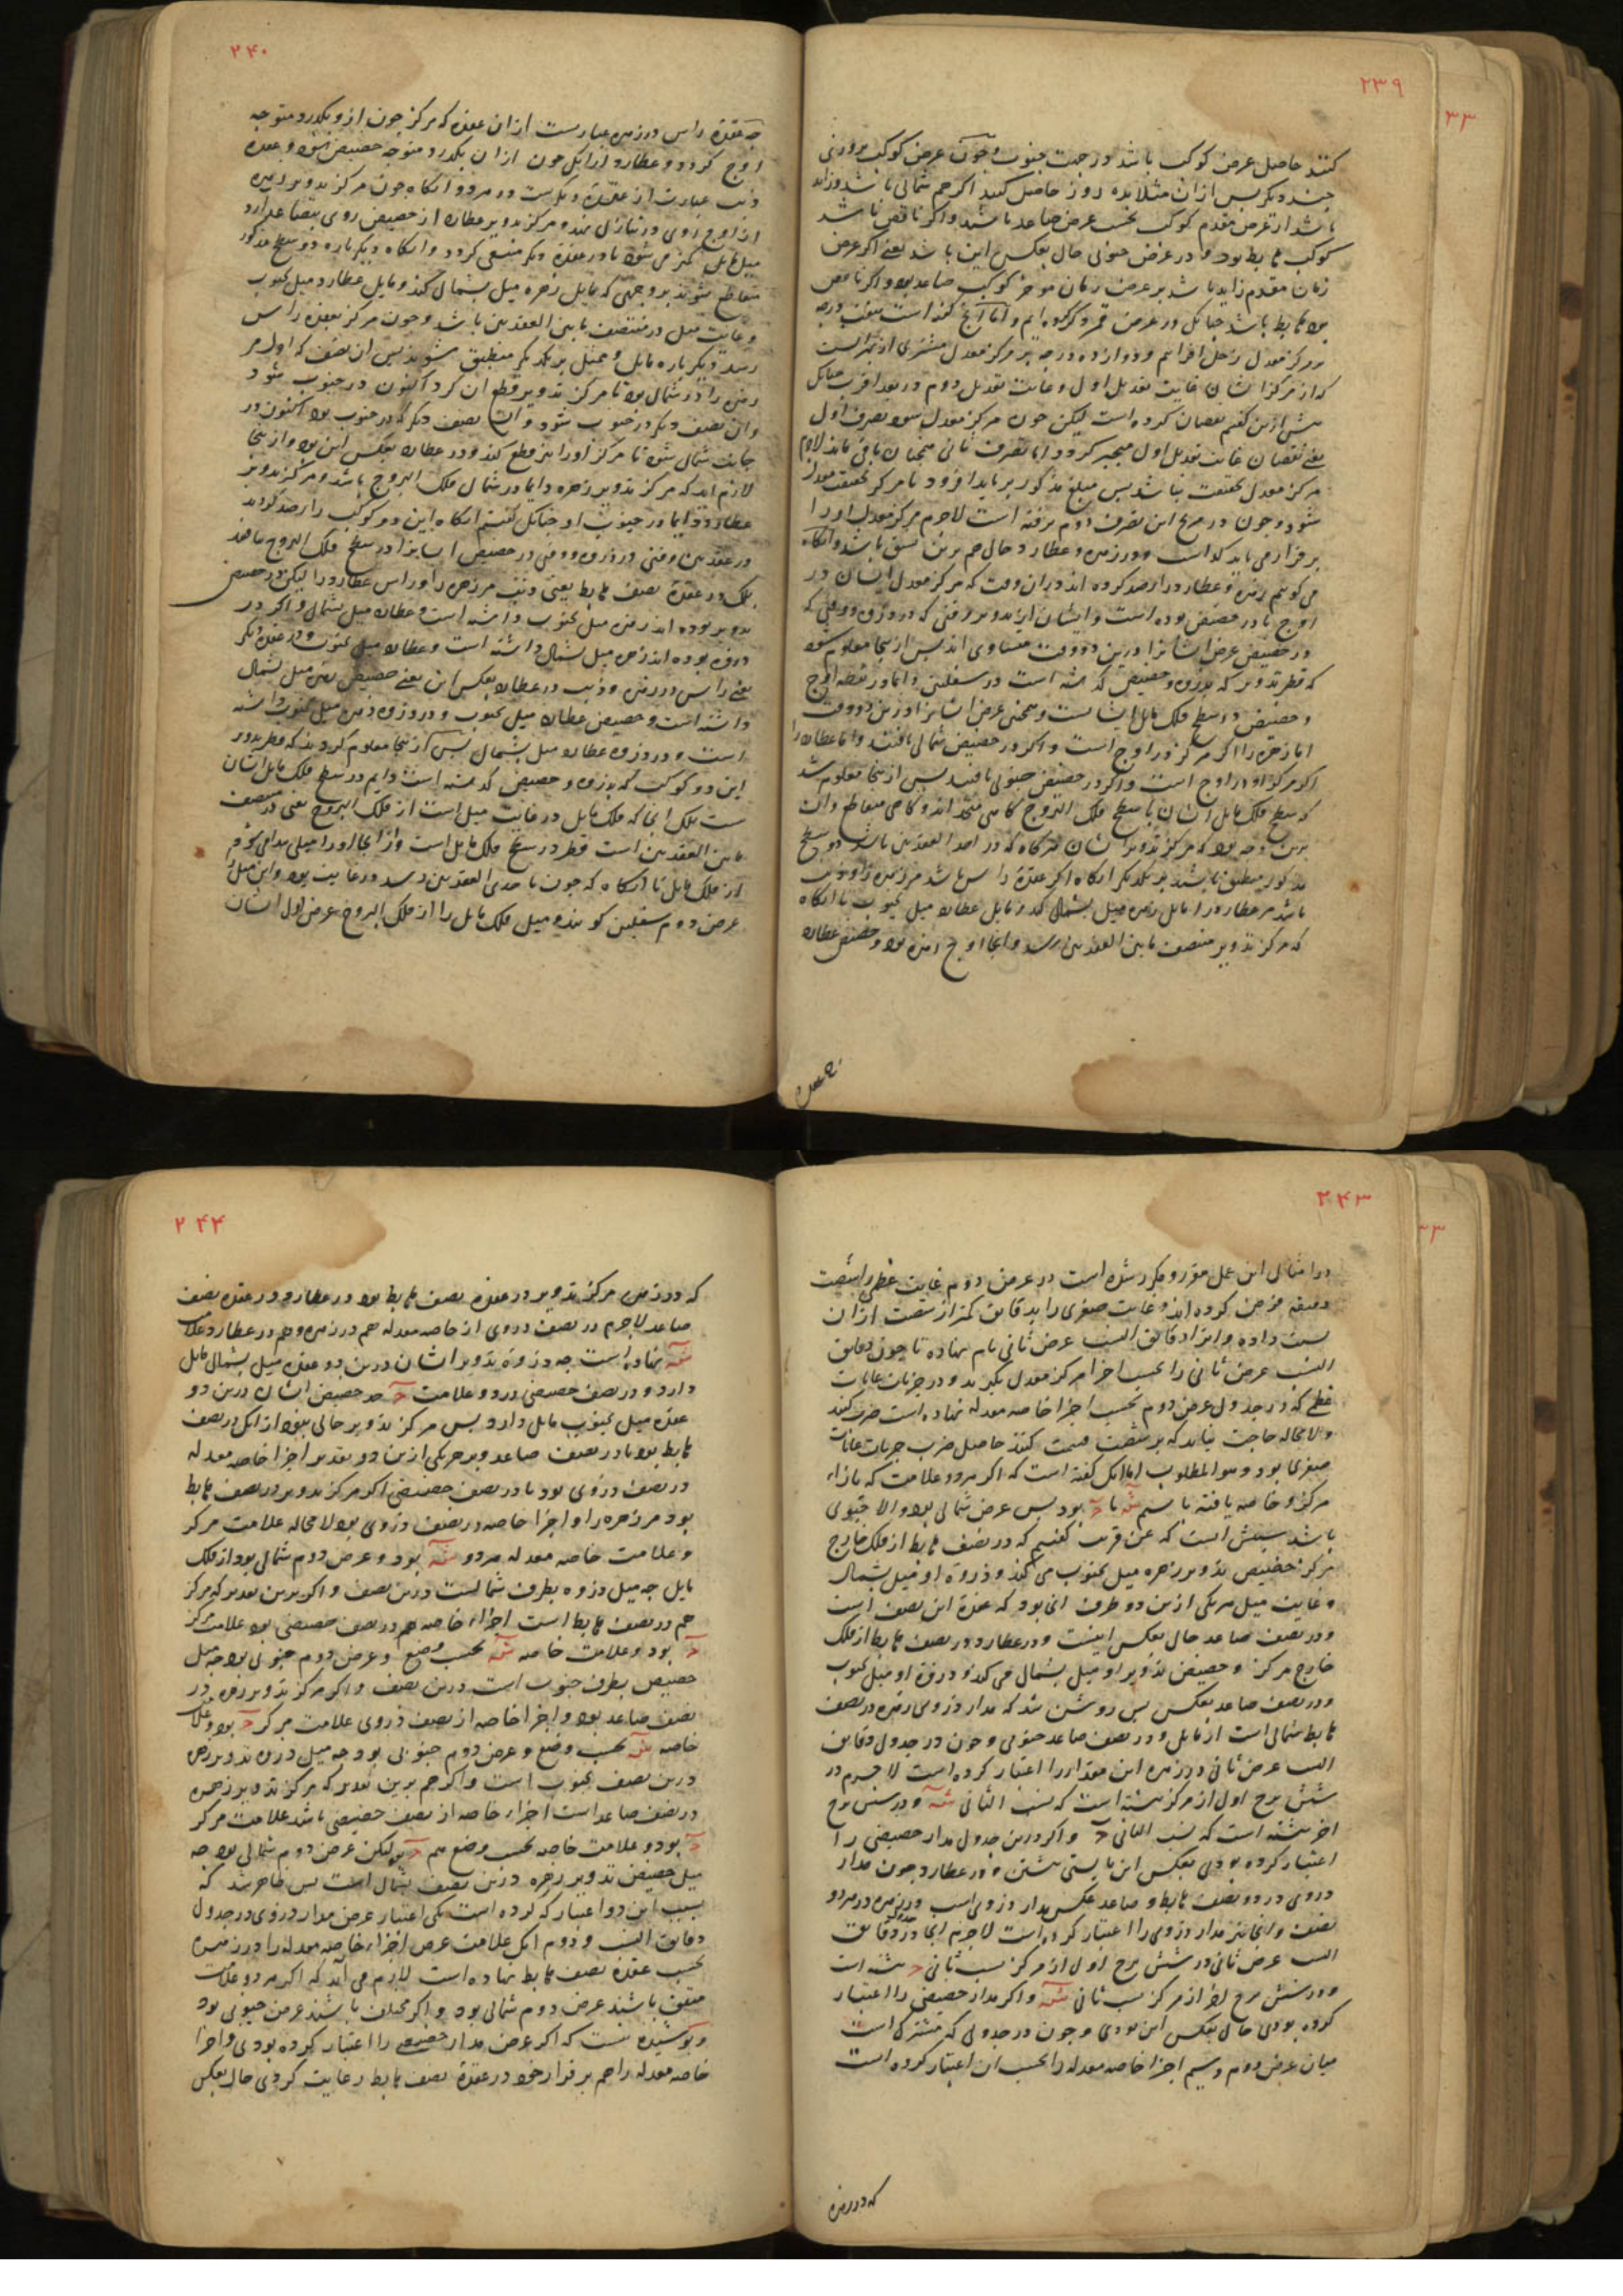 ۲۳۹
۳۳
کنند حاصل عرض کوکب باشد در جهت جنوب و چون عرض کوکب بروزی
چند دیگر پس از آن مثلا بده روز حاصل کنند اگر هم شمالی باشد و زاید
باشد از عرض مقدم کوکب بحسب عرض صاعد باشد و اگر ناقص باشد
کوکب هابط بود و در عرض جنوبی حال بعکس این باشد یعنی اگر عرض
زمان مقدم زاید باشد بر عرض زمان موخر کوکب صاعد بود و اگر ناقص
بود هابط باشد چنانک در عرض قمر ذکر کرده ایم و اما آنچ گفته است هفت درجه
بر مرکز معدل زحل افزاییم و دوازده درجه بر مرکز معدل مشتری از بهر آنست
که از مرکز ایشان غایت تعدیل اول و غایت تعدیل دوم در بعد اقرب چنانک
پیش ازین گفتیم نقصان کرده است لیکن چون مرکز معدل شود بصرف اول
یعنی نقصان غایت تعدیل اول منجبر گردد اما تصرف ثانی همچنان باقی ماند لاجرم
مرکز معدل بحقیقت نباشد پس مبلغ مذکور بر باید افزود تا مرکز بحقیقت معدل
شود و چون در مریخ این تصرف دوم نرفته است لاجرم مرکز معدل او را
برقرار می باید گذاشت و در زهره و عطارد حال هم برین نسق باشد و آنگاه
می گوییم زهره و عطارد را رصد کرده اند در آن وقت که مرکز معدل ایشان در
اوج یا در حضیض بوده است و ایشان از تدویر وقتی که در ذروه و وقتی که
در حضیض عرض ایشانرا درین دو وقت متساوی اند پس از اینجا معلوم شود
که قطر تدویر که بذروه و حضیض گذشته است در سفلین دایما در نقطه اوج
و حضیض در سطح فلک مایل ایشانست و همچنین عرض ایشانرا درین دو وقت
اما زهره را اگر مرکز در اوج است و اگر در حضیض شمالی یافتند و اما عطارد را
اگر مرکز او در اوج است و اگر در حضیض جنوبی یافتند پس از اینجا معلوم شد
که سطح فلک مایل ایشان با سطح فلک البروج گاهی متحد اند و گاهی متقاطع و آن
برین وجه بود که مرکز تدویر ایشان هرگاه که در احد العقدتین باشد دو سطح
مذکور منطبق باشد بر یکدیگر آنگاه اگر عقده راس باشد مر زهره را و ذنب
باشد مر عطارد را مایل زهره میل بشمال کند و مایل عطارد میل بجنوب تا آنگاه
که مرکز تدویر بمنتصف مابین العقدتین رسد و آنجا اوج زهره بود و حضیض عطارد
۲۴۰
چه عقده راس در زهره عبارتست از آن عقده که مرکز چون ازو بگذرد متوجه
اوج گردد و عطارد را آنک چون از آن بگذرد متوجه حضیض شود و عقده
ذنب عبارت از عقده دیگرست در هر دو آنگاه چون مرکز تدویر زهره
از اوج روی در تنازل نهد و مرکز تدویر عطارد از حضیض روی بتصاعد آرد
میل مایل کمتر می شود تا در عقده دیگر منتفی گردد و آنگاه دیگر باره دو سطح مذکور
متقاطع شوند بر وجهی که مایل زهره میل بشمال کند و مایل عطارد میل بجنوب
و غایت میل در منتصف مابین العقدتین باشد و چون مرکز بعقده راس
رسد دیگر باره مایل و ممثل بر یکدیگر منطبق شوند پس آن نصف که اول مر
زهره را در شمال بود تا مرکز تدویر قطع آن کرد اکنون در جنوب شود
و آن نصف دیگر در جنوب شود و آن نصف دیگر که در جنوب بود اکنون در
جانب شمال شود تا مرکز او را نیز قطع کند و در عطارد بعکس این بود و از اینجا
لازم آید که مرکز تدویر زهره دایما در شمال فلک البروج باشد و مرکز تدویر
عطارد دایما در جنوب او چنانک گفتیم آنگاه این دو کوکب را رصد کردند
در عقدتین وقتی در ذروه و وقتی در حضیض ایشانرا در سطح فلک البروج نیافتند
بلک در عقده نصف هابط یعنی ذنب مر زهره را و راس عطارد را لیکن در حضیض
تدویر بوده اند زهره میل بجنوب داشته است و عطارد میل بشمال و اگر در
ذروه بوده اند زهره میل بشمال داشته است و عطارد میل بجنوب و در عقده دیگر
یعنی راس در زهره و ذنب در عطارد بعکس این یعنی حضیض زهره میل بشمال
داشته است و حضیض عطارد میل بجنوب و در ذروه زهره میل بجنوب داشته
است و در ذروه عطارد میل بشمال پس از اینجا معلوم کردند که قطر تدویر
این دو کوکب که بذروه و حضیض گذشته است دایم در سطح فلک مایل ایشان
نیست بلک آنجا که فلک مایل در غایت میل است از فلک البروج یعنی در منتصف
مابین العقدتین است قطر در سطح فلک مایل است و از آنجا او را میلی پدید می آید
از فلک مایل تا آنگاه که چون باحدی العقدتین رسد در غایت بود و این میل را
عرض دوم سفلین گویند و میل فلک مایل را از فلک البروج عرض اول ایشان
۲۴۳
۳۳
در امثال این عمل مقرر و مکرر شده است در عرض دوم غایت عظمی را شصت
دقیقه فرض کرده اند و غایت صغری را بدقایق کمتر از شصت از آن
نسبت داده و آنرا دقایق النسب عرض ثانی نام نهاده تا چون دقایق
النسب عرض ثانی را بحسب اجزا مرکز معدل بگیرند و در جزیات غایات
عظمی که در جدول عرض دوم بحسب اجزا خاصه معدله نهاده است ضرب کنند
و لامحاله حاجت نیاید که بر شصت قسمت کنند حاصل ضرب جزیات غایات
صغری بود و هو المطلوب اما آنک گفته است که اگر هر دو علامت که بازاء
مرکز و خاصه یافته باشیم شه یا ح بود پس عرض شمالی بود و الا جنوبی
باشد سببش آنست که عن قریب گفتیم که در نصف هابط از فلک خارج
مرکز حضیض تدویر زهره میل بجنوب می کند و ذروه او میل بشمال
و غایت میل هر یکی ازین دو طرف آنجا بود که عقده این نصف است
و در نصف صاعد حال بعکس اینست و در عطارد در نصف هابط از فلک
خارج مرکز و حضیض تدویر او میل بشمال می کند و ذروه او میل بجنوب
و در نصف صاعد بعکس پس روشن شد که مدار ذروی زهره در نصف
هابط شمالی است از مایل و در نصف صاعد جنوبی و چون در جدول دقایق
النسب عرض ثانی در زهره این مقدار را اعتبار کرده است لاجرم در
شش برج اول از مرکز نبشته است که نسب الثانی شه و در شش برج
آخر نبشته است که نسب الثانی ح و اگر درین جدول مدار حضیضی را
اعتبار کرده بودی بعکس این بایستی نبشتن و در عطارد چون مدار
ذروی در دو نصف هابط و صاعد عکس مدار ذروی است در زهره در هر دو
نصف و آنجا نیز مدار ذروی را اعتبار کرده است لاجرم اینجا در دقایق
النسب عرض ثانی در شش برج اول از مرکز نسب ثانی ح نبشته است
و در شش برج آخر از مرکز نسب ثانی شه و اگر مدار حضیضی را اعتبار
کرده بودی حال بعکس این بودی و چون در جدولی که مشترک است
میان عرض دوم و سیم اجزا خاصه معدله را بحسب آن اعتبار کرده است
که در زهره
۲۴۴
که در زهره مرکز تدویر در عقده نصف هابط بود و در عطارد در عقده نصف
صاعد لاجرم در نصف ذروی از خاصه معدله هم در زهره و هم در عطارد علامت
شه نهاده است چه ذروه تدویر ایشان درین دو عقده میل بشمال مایل
دارد و در نصف حضیضی در دو علامت ح چه حضیض ایشان درین دو
عقده میل بجنوب مایل دارد پس مرکز تدویر خالی نبود از آنک در نصف
هابط بود یا در نصف صاعد و بر هر یکی ازین دو تقدیر اجزا خاصه معدله
در نصف ذروی بود یا در نصف حضیضی اگر مرکز تدویر در نصف هابط
بود مر زهره را و اجزا خاصه در نصف ذروی بود لامحاله علامت مرکز
و علامت خاصه معدله هر دو شه بود و عرض دوم شمالی بود از فلک
مایل چه میل ذروه بطرف شمالست درین نصف و اگر برین تقدیر که مرکز
هم در نصف هابط است اجزاء خاصه هم در نصف حضیضی بود علامت مرکز
ح بود و علامت خاصه شه بحسب وضع و عرض دوم جنوبی بود چه میل
حضیض بطرف جنوب است درین نصف و اگر مرکز تدویر زهره در
نصف صاعد بود و اجزا خاصه از نصف ذروی علامت مرکز ح بود و علامت
خاصه شه بحسب وضع و عرض دوم جنوبی بود چه میل ذروه تدویر زهره
درین نصف بجنوب است و اگر هم برین تقدیر که مرکز تدویر زهره
در نصف صاعد است اجزاء خاصه از نصف حضیضی باشد علامت مرکز
ح بود و علامت خاصه بحسب وضع هم ح بود لیکن عرض دوم شمالی بود چه
میل حضیض تدویر زهره درین نصف بشمال است پس ظاهر شد که
بسبب این دو اعتبار که کرده است یکی اعتبار عرض مدار ذروی در جدول
دقایق النسب و دوم آنک علامت عرض اجزاء خاصه معدله را در زهره
بحسب عقده نصف هابط نهاده است لازم می آید که اگر هر دو علامت
متفق باشند عرض دوم شمالی بود و اگر مختلف باشند عرض جنوبی بود
و پوشیده نیست که اگر عرض مدار حضیضی را اعتبار کرده بودی و اجزا
خاصه معدله را هم برقرار خود در عقده نصف هابط رعایت کردی حال بعکس